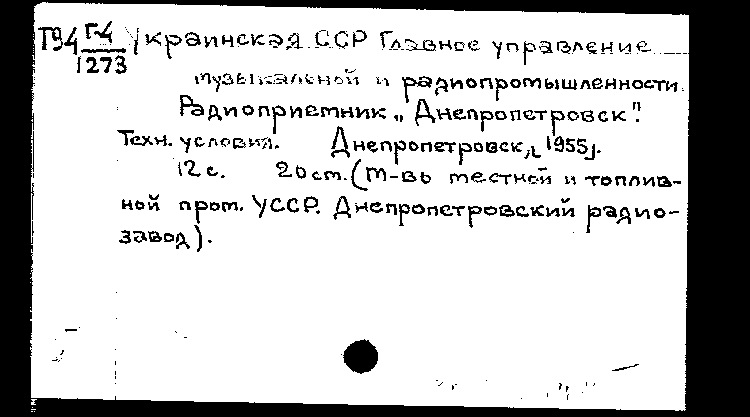 Т94 Г-4 Украинская ССР Главное управление
1273
музыкальной и радиопромышленности.
Радиоприемник „Днепропетровск".
Техн. условия. Днепропетровск, [1955].
12 с. 20 см. (М-во местной и топлив-
ной пром. УССР. Днепропетровский радио-
завод).